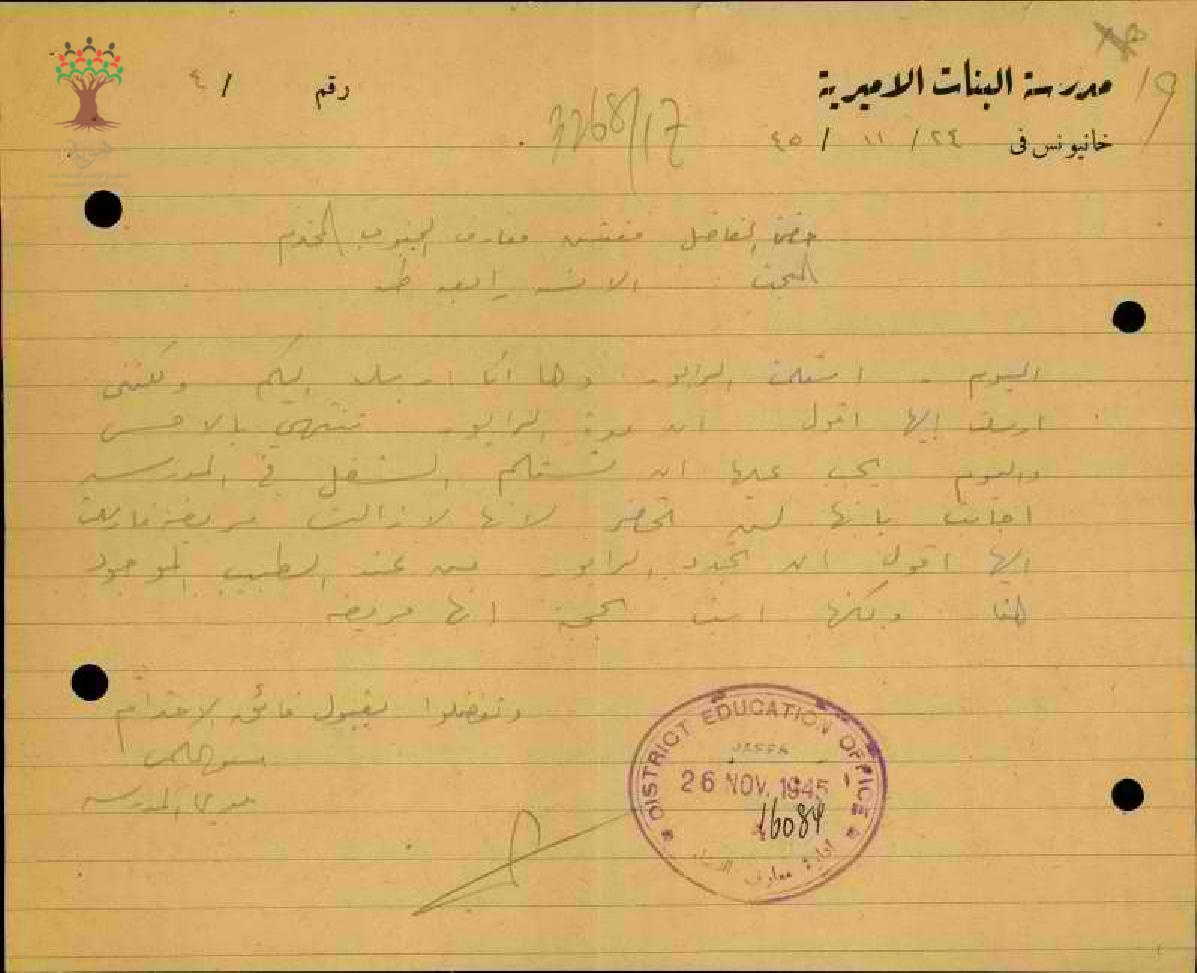 مدرسة البنات الاميرية
19
رقم / ٤
خانيونس في ٢٤ / ١١ / ٤٥
3268/17
حضرة الفاضل مفتش معارف الجنوب المحترم
المبحث : الانسه رابعه طه
اليوم - استلمت الرابور وها أنا ارسله اليكم ولكنني
ارسلت إليها اقول ان مدة الرابور تنتهي بالامس
واليوم يجب عليها ان تستلم الشغل في المدرسه
اجابت بانها لن تحضر لانها لا زالت مريضه فارسلت
اليها اقول ان تجدد الرابور من عند الطبيب الموجود
هنا ولكنها ابت بحجة انها مريضه
وتفضلوا بقبول فائق الاحترام
مديرة المدرسه
DISTRICT EDUCATION OFFICE
JAFFA
26 NOV. 1945
16084
ادارة معارف اللواء
هوية